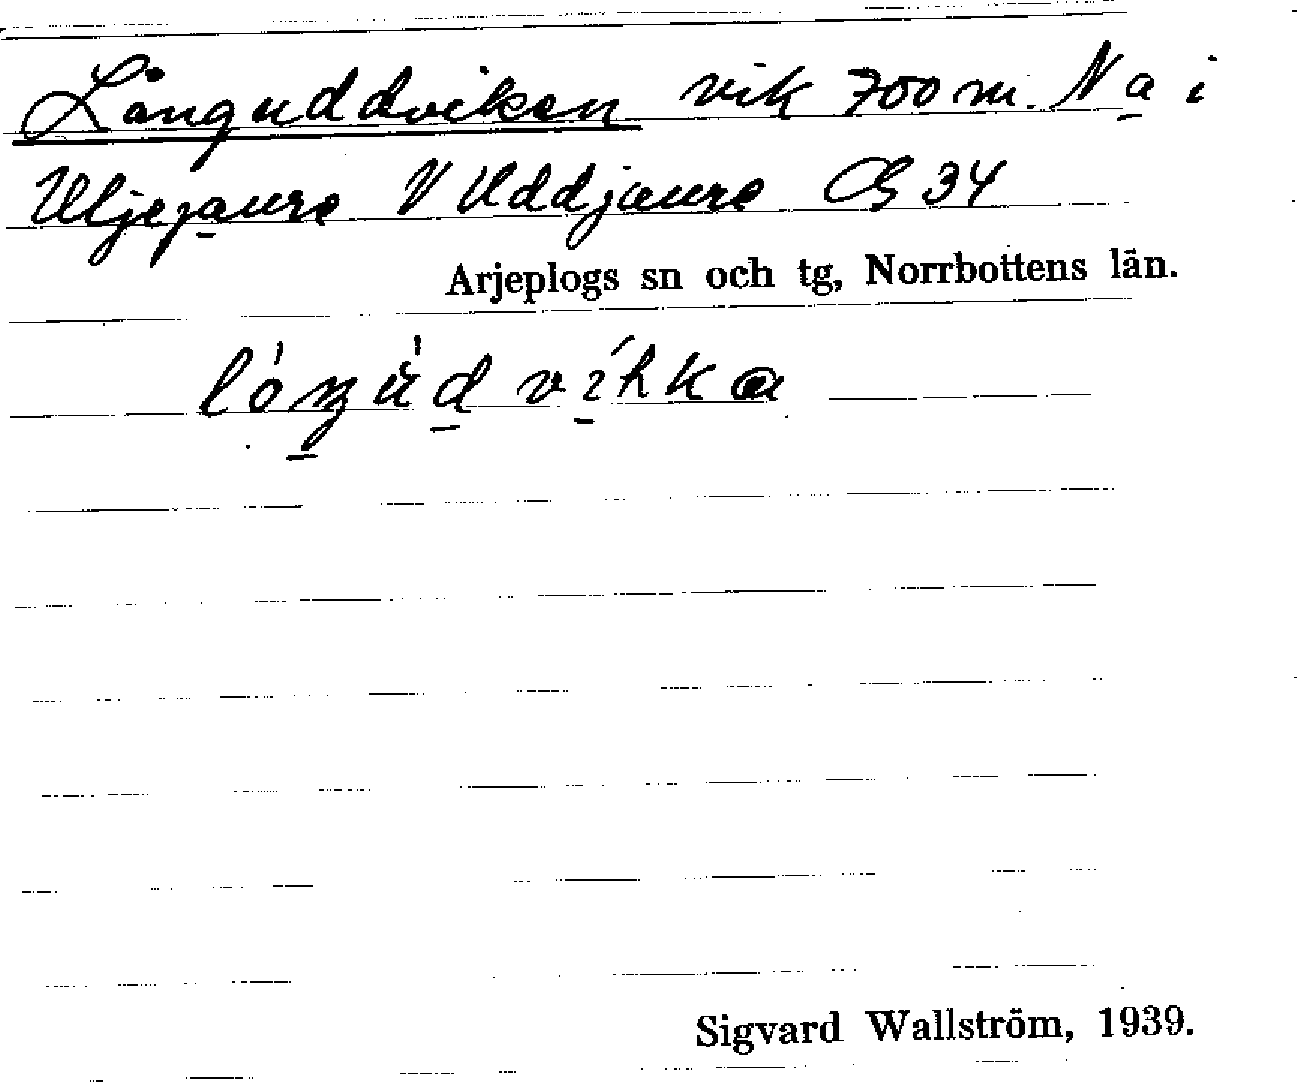 Långuddviken vik 700 m. Na i
Uljejaure V Uddjaure C5 34
Arjeplogs sn och tg, Norrbottens län.
lóŋùd víhka
Sigvard Wallström, 1939.